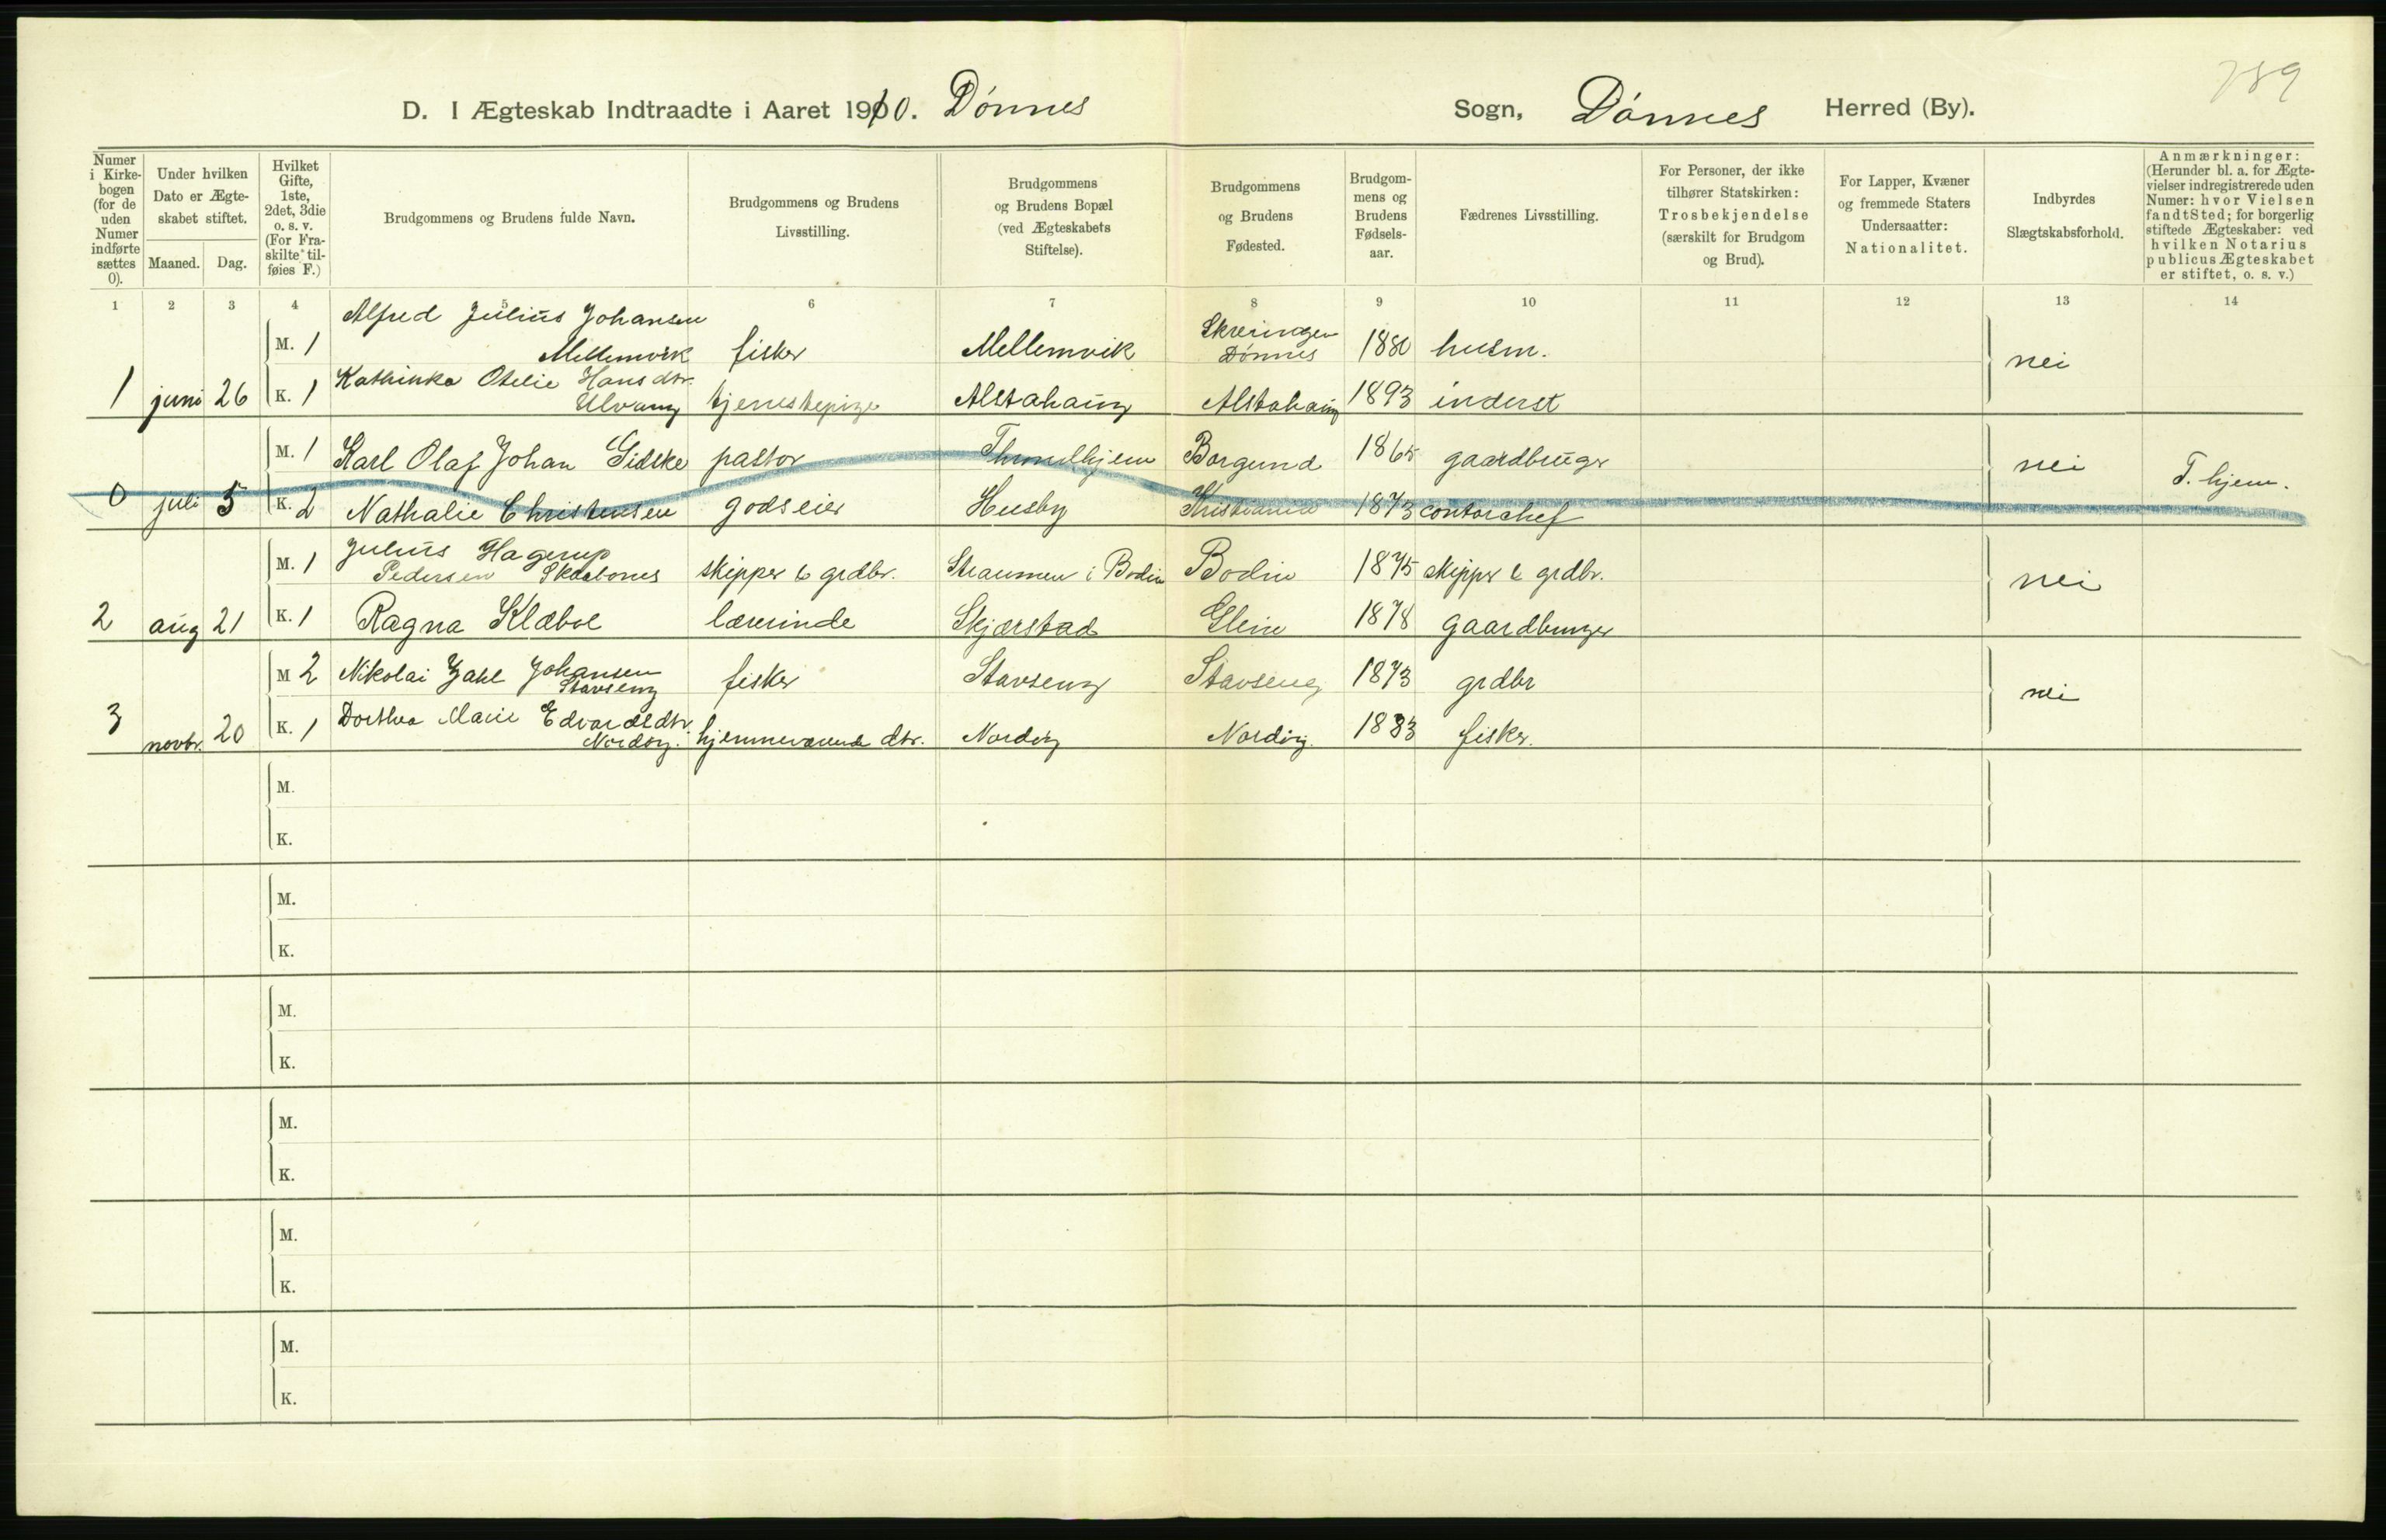 789
D. I Ægteskab Indtraadte i Aaret 1910. Dønnes Sogn, Dønnes Herred (By).
Numer i Kirkebogen (for de uden Numer indførte sættes 0).
Under hvilken Dato er Ægteskabet stiftet.
Maaned. Dag.
Hvilket Gifte, 1ste, 2det, 3die o. s. v. (For Fraskilte tilføies F.)
Brudgommens og Brudens fulde Navn.
Brudgommens og Brudens Livsstilling.
Brudgommens og Brudens Bopæl (ved Ægteskabets Stiftelse).
Brudgommens og Brudens Fødested.
Brudgommens og Brudens Fødselsaar.
Fædrenes Livsstilling.
For Personer, der ikke tilhører Statskirken: Trosbekjendelse (særskilt for Brudgom og Brud).
For Lapper, Kvæner og fremmede Staters Undersaatter: Nationalitet.
Indbyrdes Slægtskabsforhold.
Anmærkninger: (Herunder bl. a. for Ægtevielser indregistrerede uden Numer: hvor Vielsen fandt Sted; for borgerlig stiftede Ægteskaber: ved hvilken Notarius publicus Ægteskabet er stiftet, o. s. v.)
1 2 3 4 5 6 7 8 9 10 11 12 13 14
M. 1 Alfred Julius Johansen Mellemvik fisker Mellemvik Dønnes 1880 husm. nei
1 juni 26 K. 1 Kathinka Otelie Hansdtr. Ulvang tjenestepige Alstahaug Alstahaug 1893 inderst
M. 1 Karl Olaf Johan Gidske pastor Throndhjem Borgund 1865 gaardbruger nei T. hjem.
0 juli 5 K. 2 Nathalie Christensen godseier Husby Kristiania 1873 contorchef
M. 1 Julius Hagerup Pedersen skipper & grdbr. Straumen i Bodin Bodin 1875 skipper & grdbr. nei
2 aug 21 K. 1 Ragna Klæboe lærerinde Skjærstad Glein 1878 gaardbruger
M 2 Nikolai Zahl Johansen Stavseng fisker Stavseng Stavseng 1873 grdbr nei
3 novbr. 20 K. 1 Dorthea Marie Edvardsdtr. Nordøy. hjemmeværende dtr. Nordøy Nordøy. 1883 fisker.
M.
K.
M.
K.
M.
K.
M.
K.
M.
K.
M.
K.